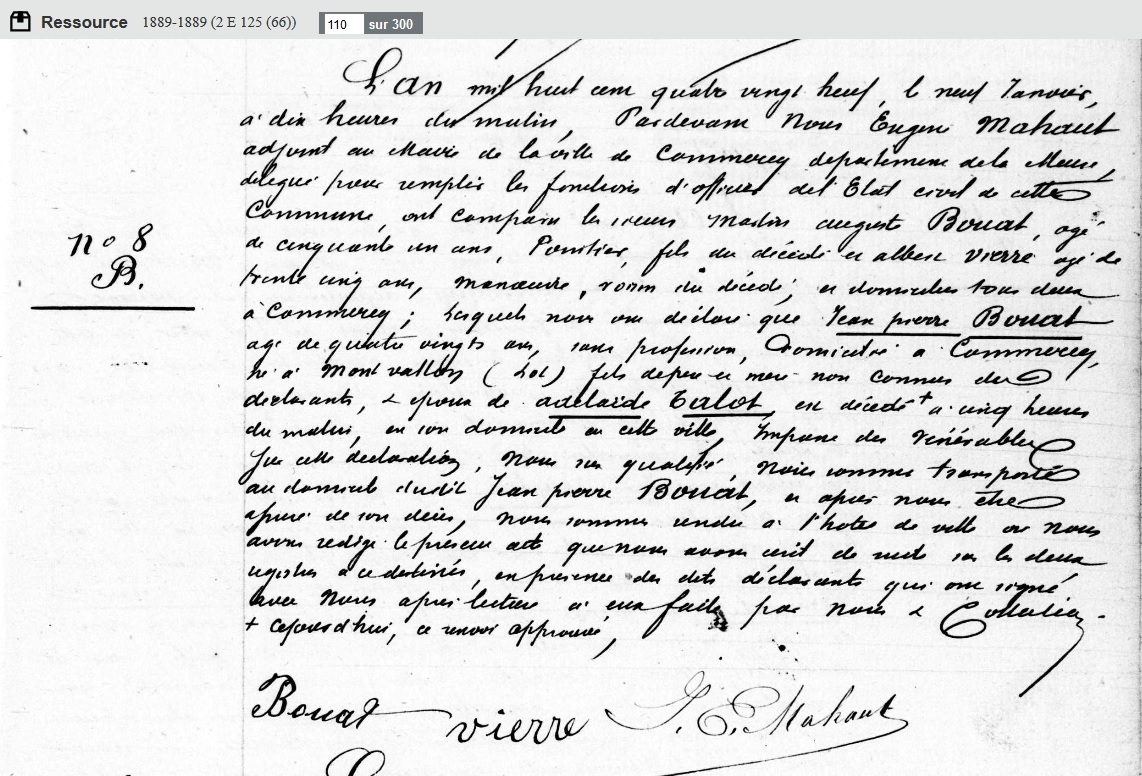 Ressource 1889-1889 (2 E 125 (66)) 110 sur 300
L'an mil huit cent quatre vingt neuf, le neuf Janvier,
à dix heures du matin, Pardevant Nous Eugene Mahaut
adjoint au Maire de la ville de Commercy departement de la Meuse,
delegué pour remplir les fonctions d'officier de l'Etat civil de cette
Commune, ont comparu les sieurs auguste Bouat, agé
n° 8
B.
de cinquante un ans, fils du décédé et albert vierre agé de
trente cinq ans, manœuvre, voisin du décédé, et domiciliés tous deux
à Commercy ; Lesquels nous ont déclaré que Jean pierre Bouat
age de quatre vingts ans, sans profession, Domicilié à Commercy,
né à Montvallon (Lot) fils de pere et mere non connus des
déclarants, & epoux de adelaide Talot, est décédé + à cinq heures
du matin, en son domicile en cette ville, Impasse des Vénérables
Sur cette declaration, Nous en qualité, Nous sommes transporté
au domicile dudit Jean pierre Bouat, et apres nous être
assuré de son décès, Nous sommes rendu à l'hotel de ville où nous
avons redigé le présent acte que nous avons écrit de suite sur les deux
registres à ce destinés, en présence des dits déclarants qui ont signé
avec Nous apres lecture à eux faite par nous & Collation.
+ cejourd'hui, ce renvoi approuvé,
Bouat vierre E. Mahaut